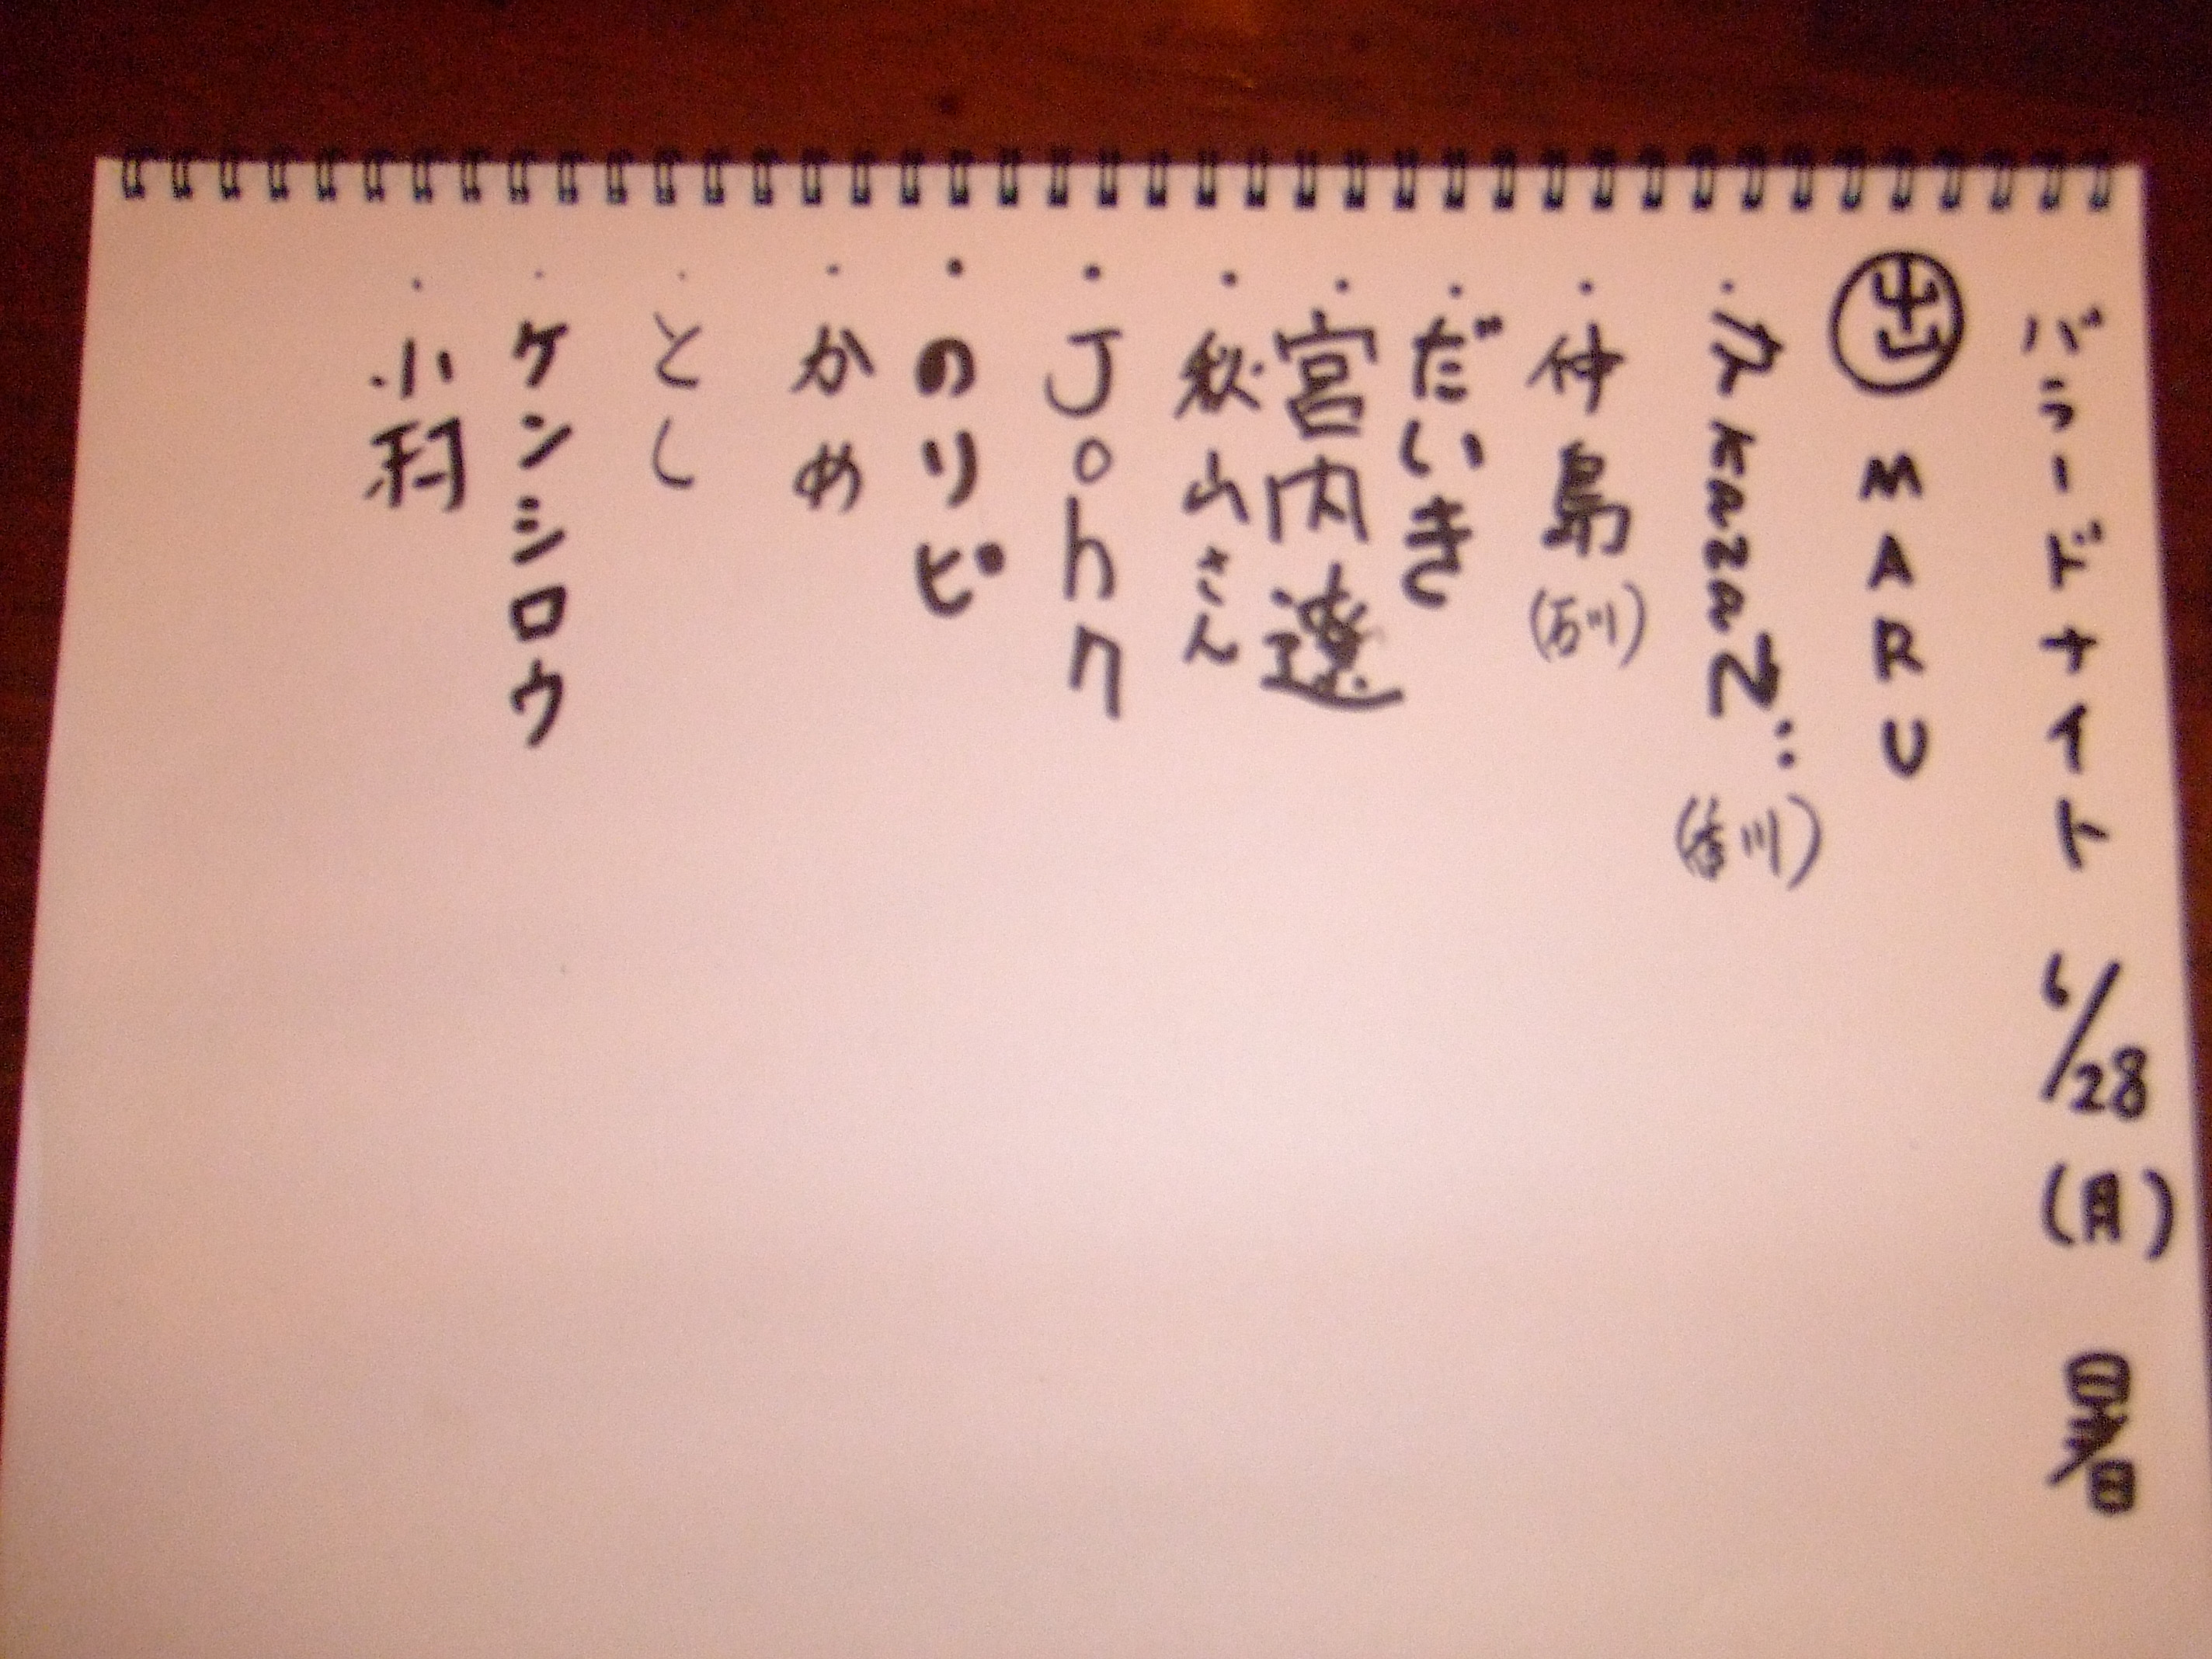 バラードナイト 6/28 (月) 暑
出 MARU
・kazaN (香川)
・仲島 (石川)
・だいき
・宮内遼
・秋山さん
・John
・のりピ
・かめ
・とし
・ケンシロウ
・小村